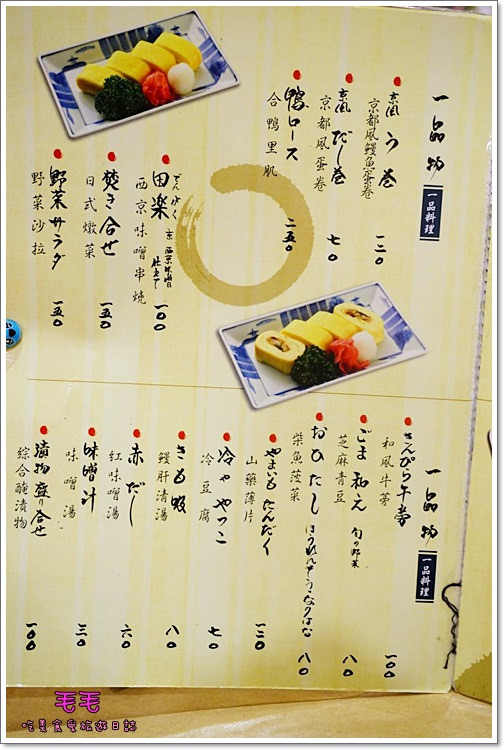 一品物
一品料理
京風 う巻
京都風鰻魚蛋卷
一二〇
京風 だし巻
京都風蛋卷
七〇
鴨ロース
合鴨里肌
二五〇
でんがく
田楽 京西京味噌仕立て
西京味噌串燒
一〇〇
焚き合せ
日式燉菜
一五〇
野菜サラダ
野菜沙拉
一五〇
一品物
一品料理
きんぴら牛蒡
和風牛蒡
一〇〇
ごま和え 旬の野菜
芝麻青豆
八〇
おひたし ほうれんそう
柴魚菠菜
八〇
やまいもたんざく
山藥薄片
一二〇
冷ややっこ
冷豆腐
七〇
きも吸
鰻肝清湯
八〇
赤だし
紅味噌湯
六〇
味噌汁
味噌湯
三〇
漬物盛り合せ
綜合醃漬物
一〇〇
毛毛
吃喜食樂旅遊日誌